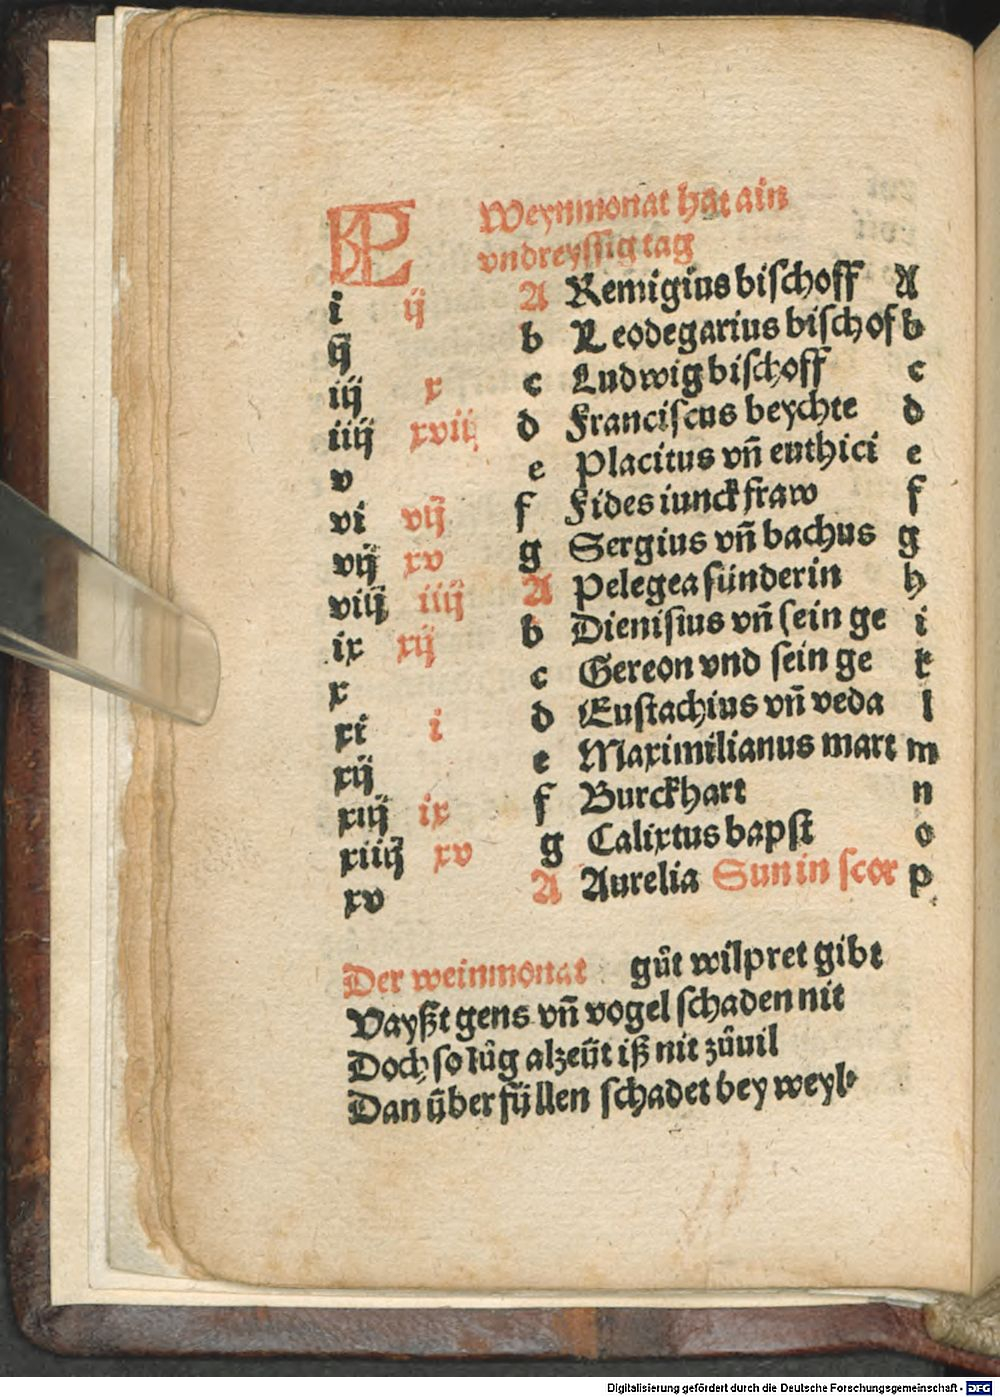 KL Weynmonat hat ain
vndreyssig tag
i ij A Remigius bischoff A
ij b Leodegarius bischof b
iij x c Ludwig bischoff c
iiij xviij d Franciscus beychte d
v e Placitus vñ euthici e
vi vij f Fides iunckfraw f
vij xv g Sergius vñ bachus g
viij iiij A Pelegea sünderin h
ix xij b Dienisius vñ sein ge i
x c Gereon vnd sein ge k
xi i d Eustachius vñ veda l
xij e Maximilianus mart m
xiij ix f Burckhart n
xiiij xv g Calixtus bapst o
xv A Aurelia Sun in scor p
Der weinmonat gůt wilpret gibt
Vayßt gens vñ vogel schaden nit
Doch so lůg alzeüt iß nit zůuil
Dan über füllen schadet bey weyl
Digitalisierung gefördert durch die Deutsche Forschungsgemeinschaft - DFG